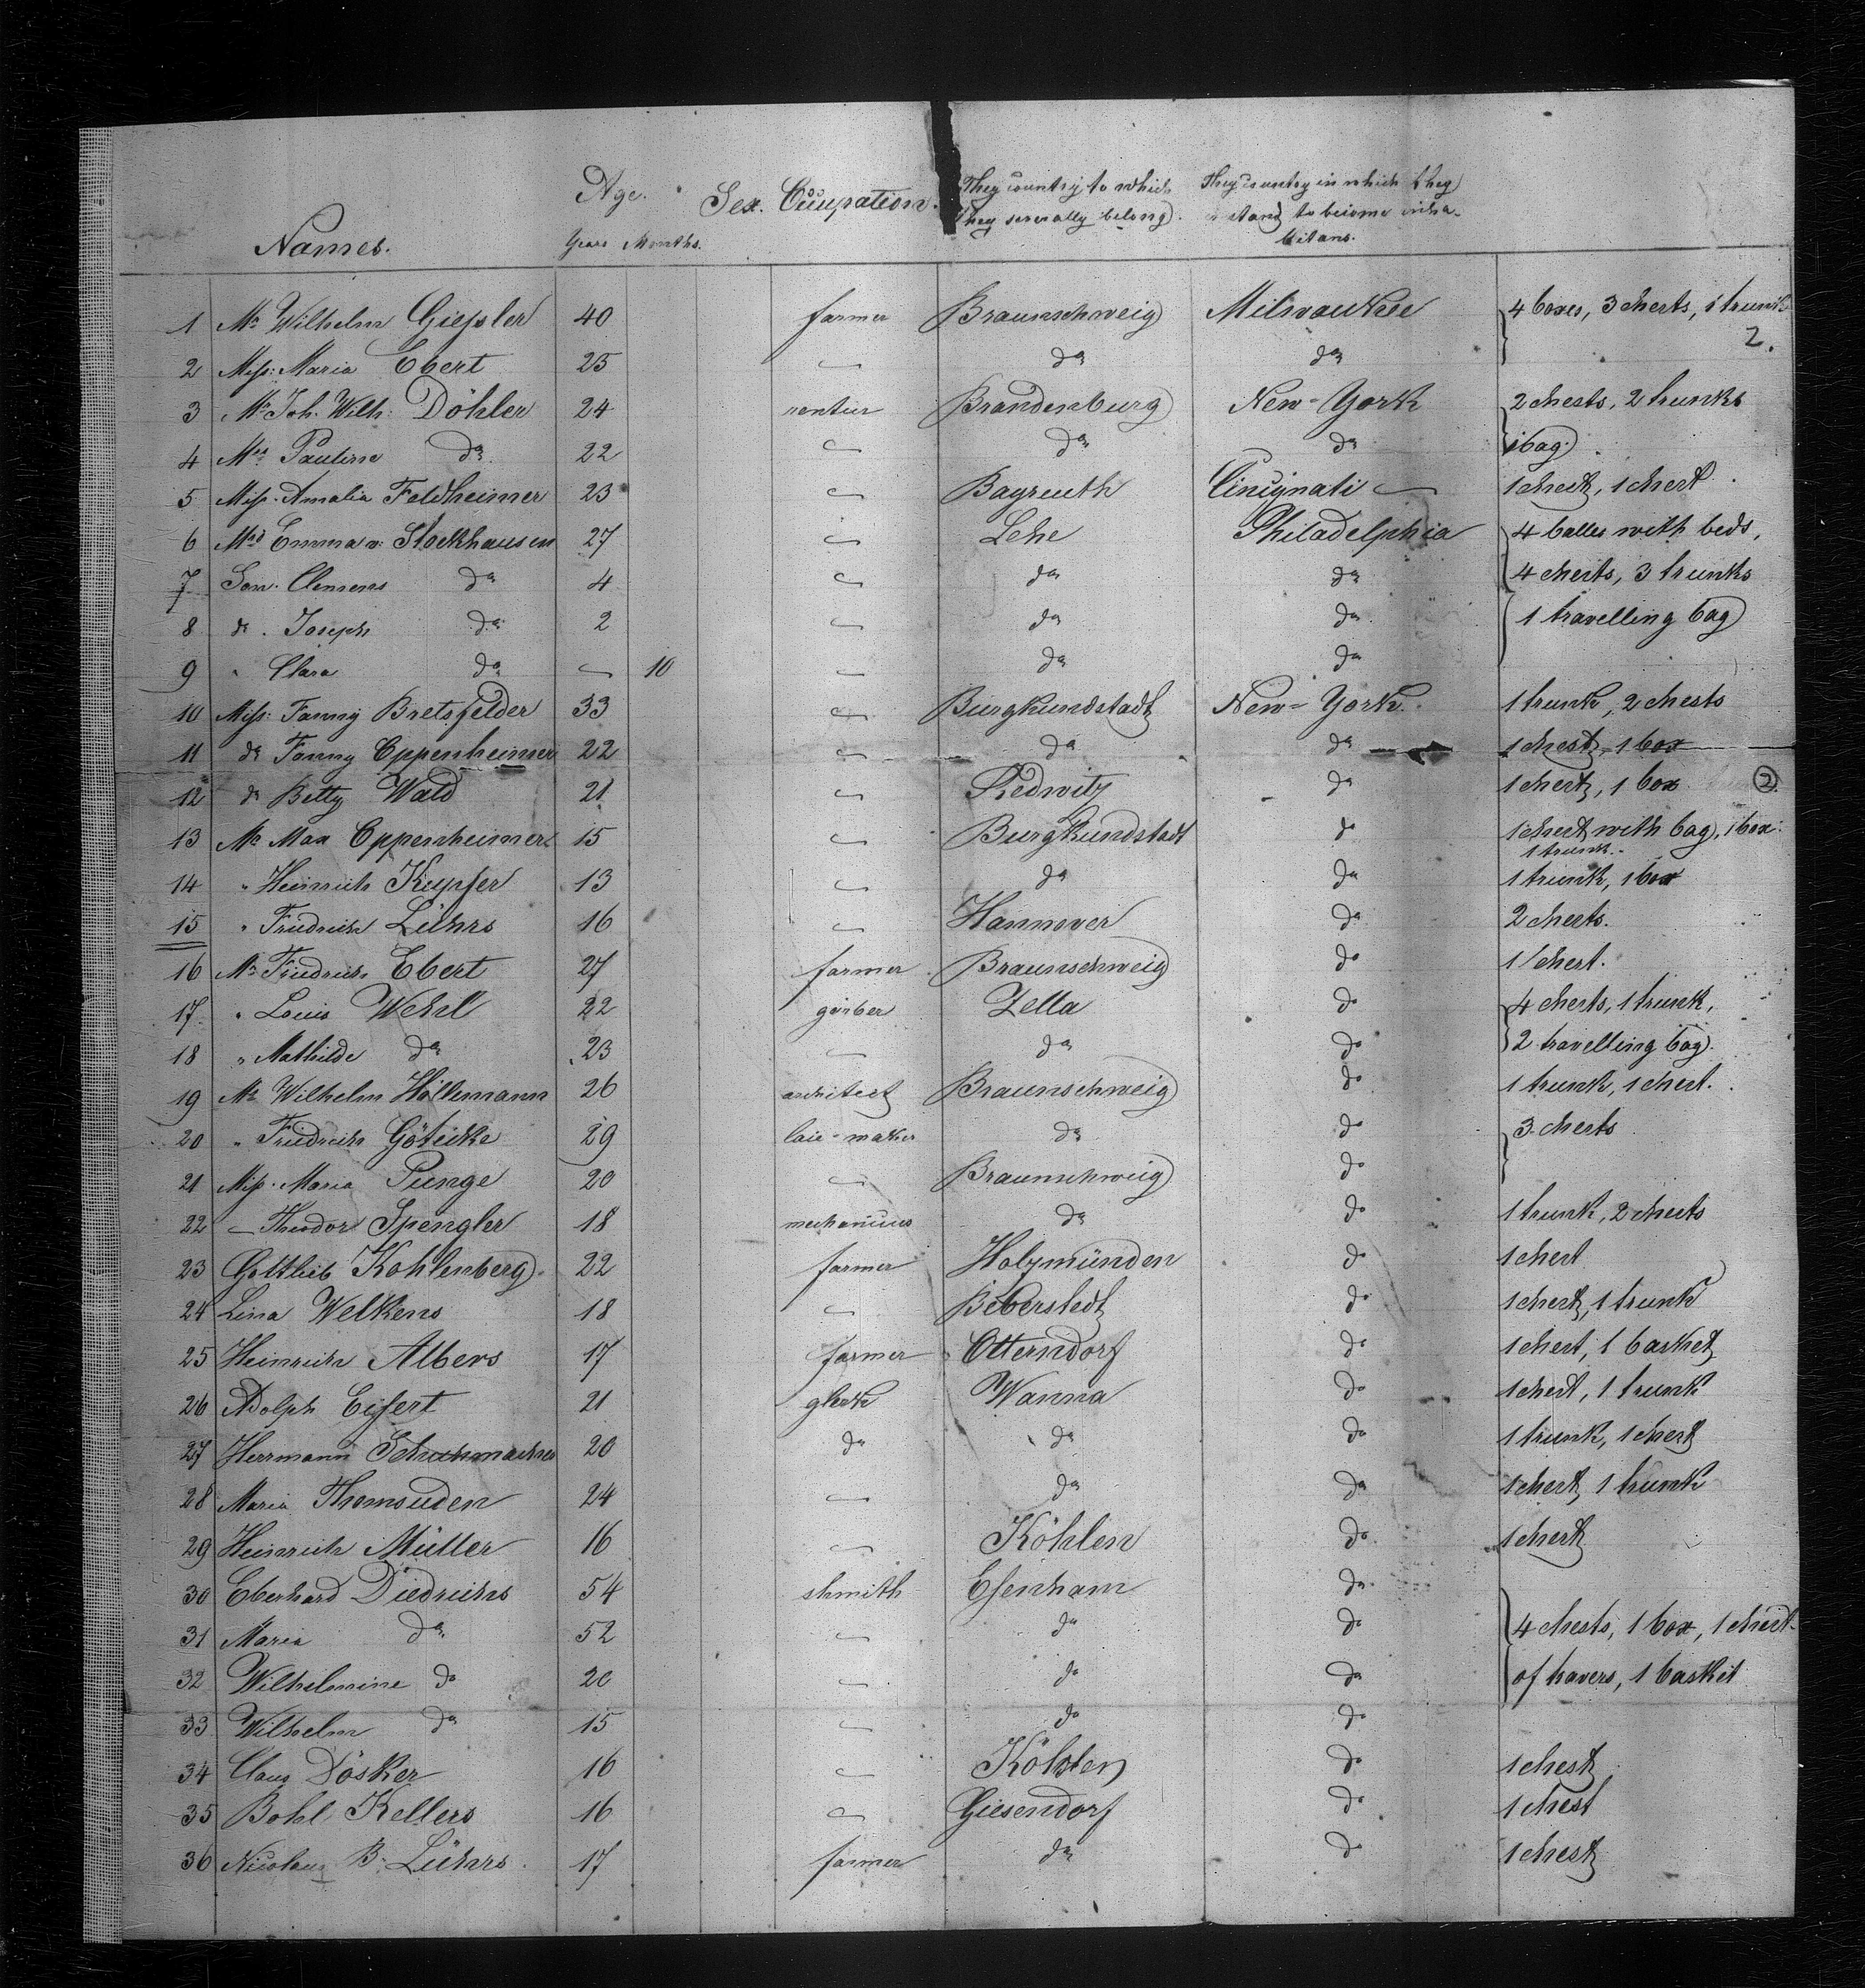 Names. Age. Sex. Occupation. They country to which They country in which they
Years Months. they severally belong. intand to become inha-
bitans.
1 Mr Wilhelm Gießler 40 farmer Braunschweig Milwaukee 4 boxes, 3 chests, 1 trunk
2.
2 Miß: Maria Ebert 25 — do do
3 Mr Joh. Wilh: Döhler 24 rentier Brandenburg New-York 2 chests, 2 trunks
4 Mrs Pauline do 22 — do do 1 bag.
5 Miß. Amalia Feldheimer 23 — Bayreuth Cincignati — 1 chest, 1 chest
6 Mrs Emma v. Stockhausen 27 — Lehe Philadelphia 4 balles with beds,
7 Son. Clemens do 4 — do do 4 chests, 3 trunks
8 do. Joseph do 2 — do do 1 travelling bag
9 " Clara do — 10 — do do
10 Miß: Fanny Bretsfelder 33 — Burgkundstadt New-York. 1 trunk, 2 chests
11 do Fanny Oppenheimer 22 — do do 1 chest, 1 box
12 do Betty Wald 21 — Redwitz do 1 chest, 1 box 2.
13 Mr Max Oppenheimer 15 — Burgkundstadt do 1 chest with bag, 1 box.
1 trunk.
14 " Heinrich Kupfer 13 — do do 1 trunk, 1 box
15 " Friedrich Lührs 16 — Hannover do 2 chests.
16 Mr Friedrich Ebert 27 farmer Braunschweig do 1 chest.
17 " Louis Wehl 22 gärber Zella do 4 chests, 1 trunk,
18 " Mathilde do 23 — do do 2 travelling bag.
19 Mr Wilhelm Höllemann 26 architect Braunschweig do 1 trunk, 1 chest.
20 " Friedrich Göticke 29 lace-maker do do 3 chests
21 Miß. Maria Punge 20 — Braunschweig do
22 — Theodor Spengler 18 mechanicus do do 1 trunk, 2 chests
23 Gottlieb Kohlenberg. 22 farmer Holzmünden do 1 chest
24 Lina Welkens 18 — Beberstedt do 1 chest, 1 trunk
25 Heinrich Albers 17 farmer Otterndorf do 1 chest, 1 basket
26 Adolph Eifert 21 glerk Wanna do 1 chest, 1 trunk
27 Herrmann Schuhmacher 20 do do do 1 trunk, 1 chest
28 Maria Thomsuden 24 — do do 1 chest, 1 trunk
29 Heinrich Müller 16 — Köhlen do 1 chest
30 Eberhard Diedrichs 54 shmith Esenham do
31 Maria do 52 — do do 4 chests, 1 box, 1 chest
32 Wilhelmine do 20 — do do of havers, 1 baskit
33 Wilhelm do 15 — do do
34 Claus Dösker 16 — Köhlen do 1 chest
35 Bohl Kellers 16 — Giesendorf do 1 chest
36 Nicolaus B. Lührs. 17 farmer do do 1 chest